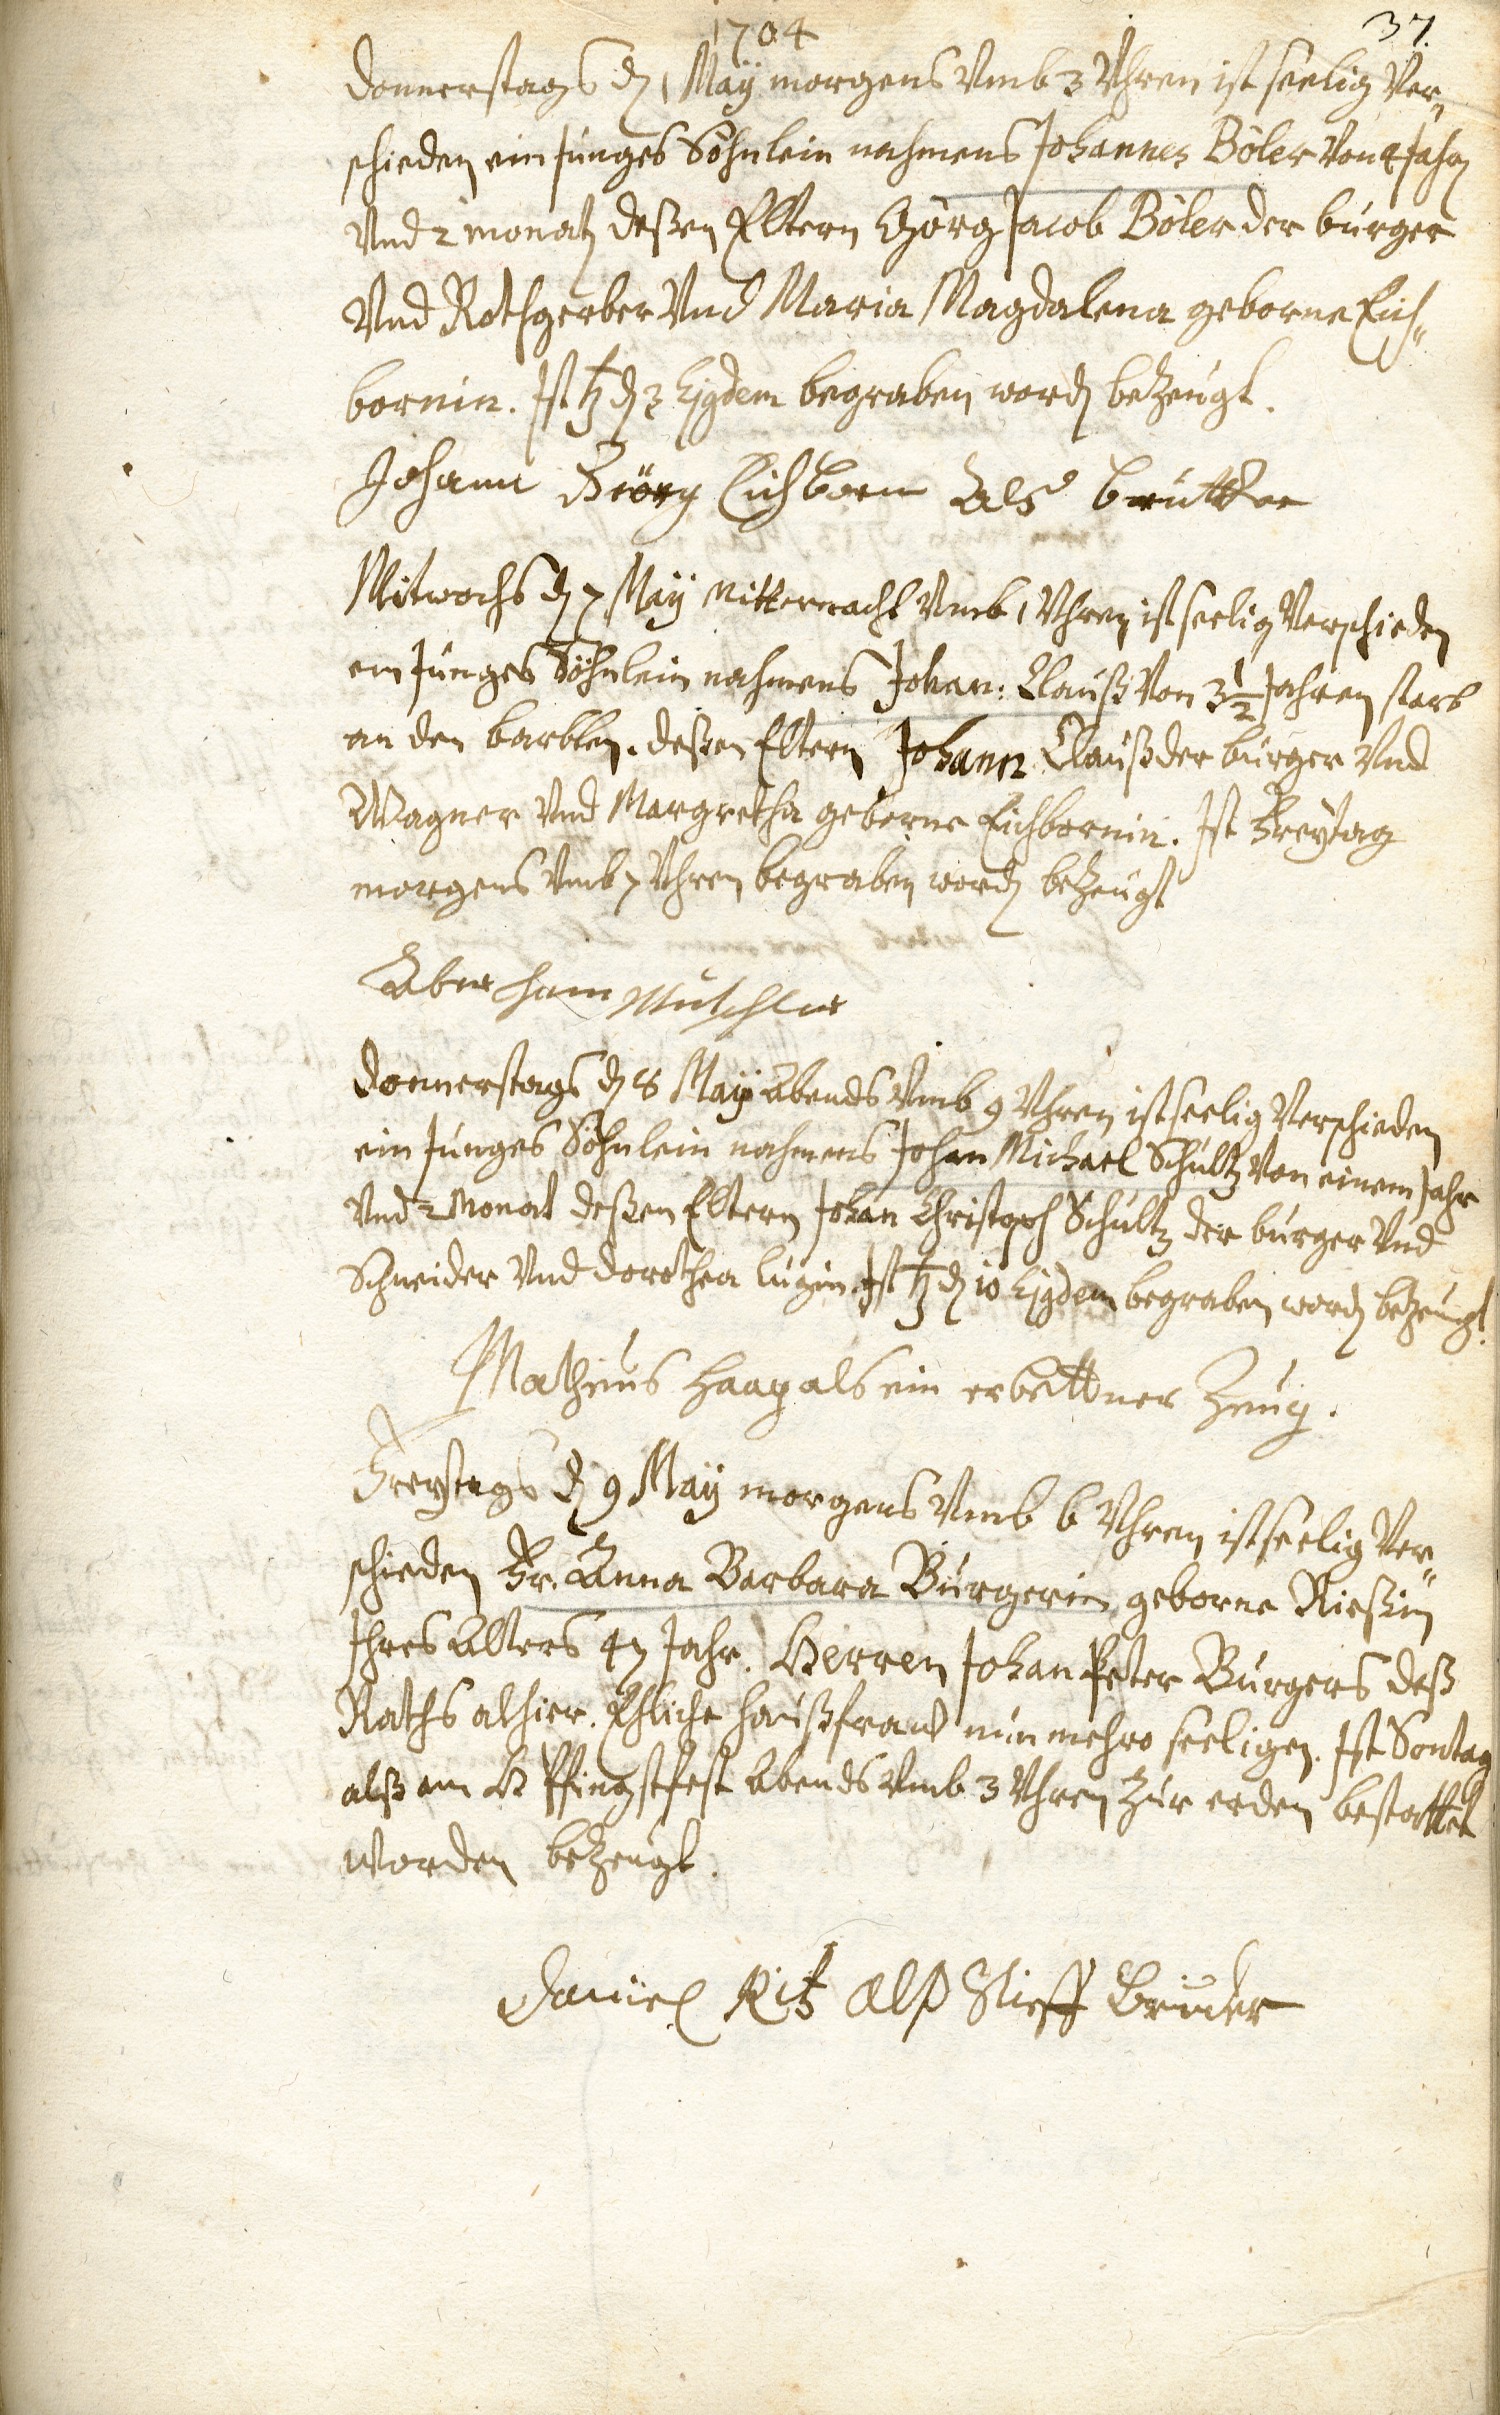 1704
37.
Donnerstags dē 1 Maÿ morgens Vmb 3 Vhren ist seelig Ver„
schieden ein Junges Söhnlein nahmens Johannes Böler Von 4 Jahrē
Vnd 2 monatē deßen Eltern Görg Jacob Böler der burger
Vnd Rothgerber Vnd Maria Magdalena geborne Eich„
bornin. Ist ♄ dē 3 Ejgdem begraben wordē bezeugt.
Johann Görg Eichborn Als
Mitwochs dē 7 Maÿ Mitternacht Vmb 1 Vhren ist seelig Verschieden
ein Junges Söhnlein nahmens Johan: Clauß Von 3½ Jahren starb
an den barblen. deßen Eltern Johann Clauß der burger Vnd
Wagner Vnd Margretha geborne Eichbornin. Ist Freytag
morgens Vmb 7 Vhren begraben wordē bezeugt
Aberham Mutschler
Donnerstags dē 8 Maÿ Abends Vmb 9 Vhren ist seelig Verschieden
ein Junges Söhnlein nahmens Johan Michael Schultz Von einem Jahr
Vnd 2 Monat deßen Eltern Johan Christoph Schultz der burger Vnd
Schneider Vnd Dorothea Lugin. Ist ♄ dē 10 Ejgdem begraben wordē bezeugt.
Matheus Haag als ein erbettner Zeug.
Freytags dē 9 Maÿ morgens Vmb 6 Vhren ist seelig Ver„
schieden Fr. Anna Barbara Burgerin geborne Rießin
Ihres Alters 47 Jahr. Herren Johan Peter Burgers deß
Raths alhier. Ehliche haußfraw nun mehro seeligen. Ist Sontag
alß am H Pfingstfest Abends Vmb 3 Vhren zur erden bestattet
worden bezeugt.
Daniel Ritz Alß Stieff Bruder